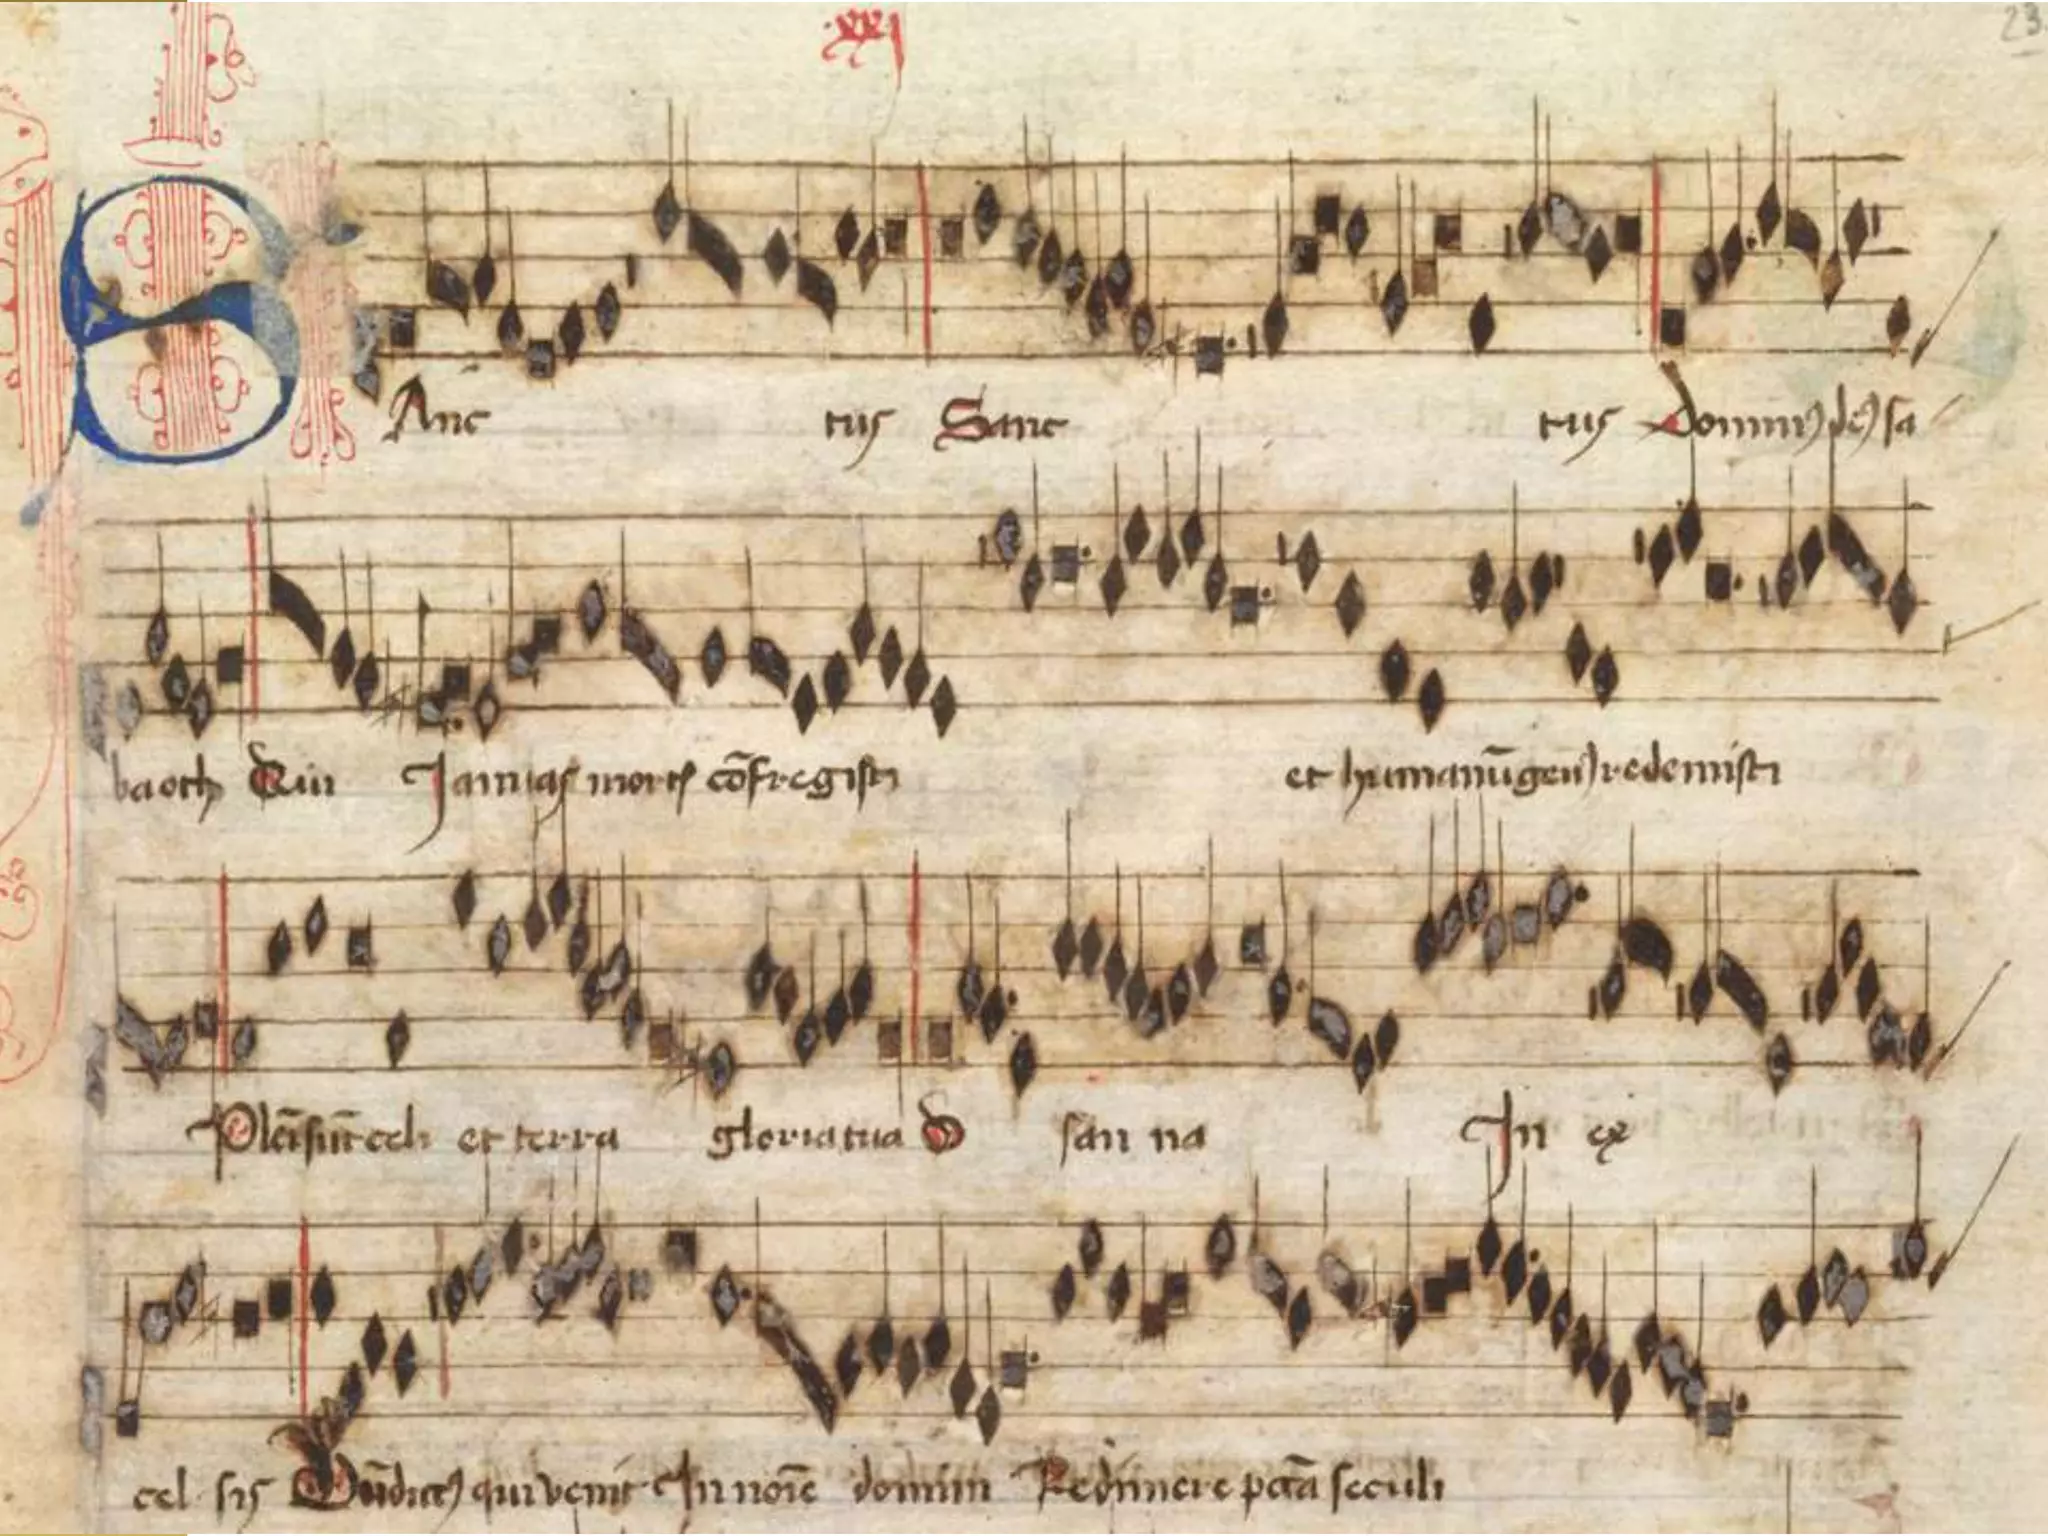 xxj 23
SAnc tus Sanc tus Domin⁹ de⁹ sa
baoth Qui Januas mort⁹ cōfregisti et humanū gen⁹ redemisti
Plēi sūt celi et terra gloria tua O san na In ex
cel sis Būdict⁹ qui venit In noīe domini Redimere pctā seculi